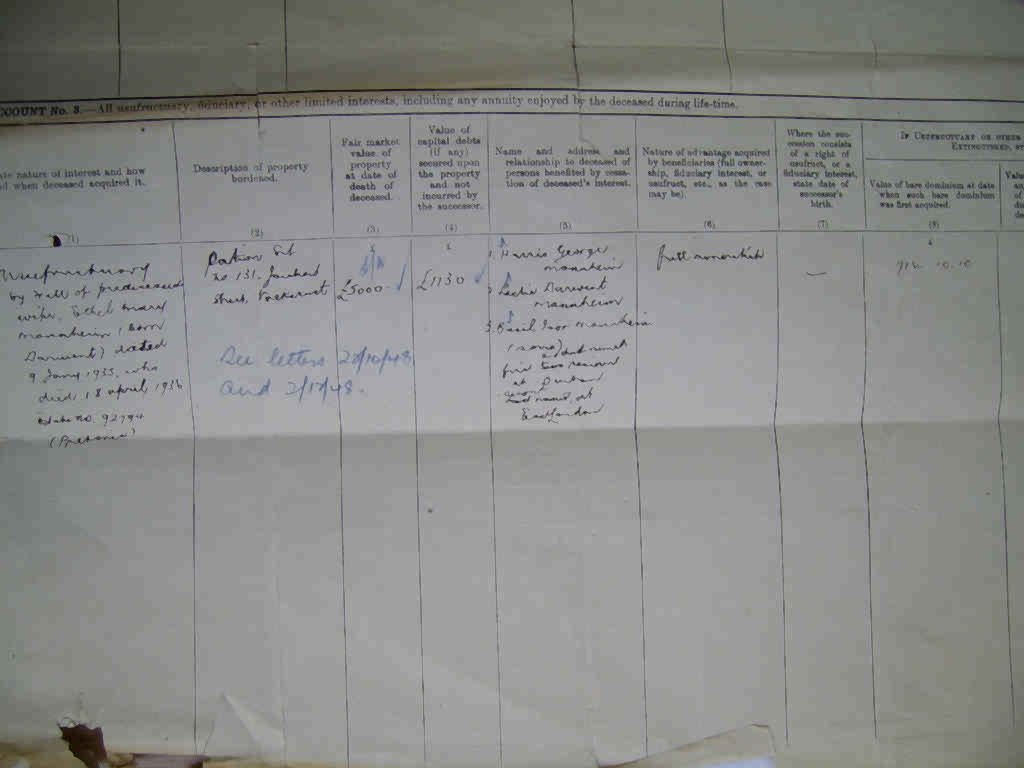 CCOUNT No. 3.—All usufructuary, fiduciary, or other limited interests, including any annuity enjoyed by the deceased during life-time.
ate nature of interest and how
d when deceased acquired it.
(1)
Description of property
burdened.
(2)
Fair market
value of
property
at date of
death of
deceased.
(3)
Value of
capital debts
(if any)
secured upon
the property
and not
incurred by
the successor.
(4)
Name and address and
relationship to deceased of
persons benefited by cessa-
tion of deceased's interest.
(5)
Nature of advantage acquired
by beneficiaries (full owner-
ship, fiduciary interest, or
usufruct, etc., as the case
may be).
(6)
Where the suc-
cession consists
of a right of
usufruct, or a
fiduciary interest,
state date of
successor's
birth.
(7)
If Usufructuary or other
Extinguished, st
Value of bare dominium at date
when such bare dominium
was first acquired.
(8)
Valu
an
of
du
de
£
£
£
Usufructuary
by Will of predeceased
wife, Ethel Mary
Mannheim (born
Darwent) dated
9 Jany 1935, who
died 18 April 1936
Estate no. 92794
(Pretoria)
Portion
no 131, Joubert
Street,
£5000
£1130
1.
George
Mannheim
2. Leslie Darwent
Mannheim
3. Basil Ivor Mannheim
(sons)
at Durban
at
East London
full ownership
—
912. 10. 10
See letters 28/10/48
and 2/12/48.